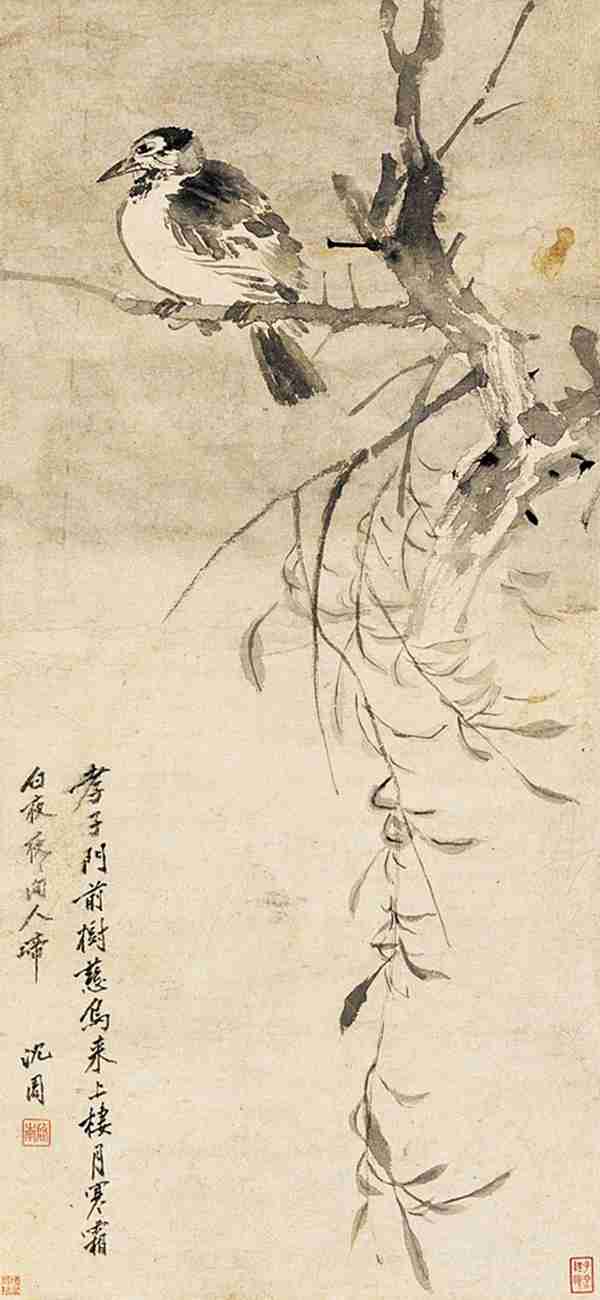 孝子門前樹慈烏来上棲月寒霜
白夜夜〻向人啼
沈周